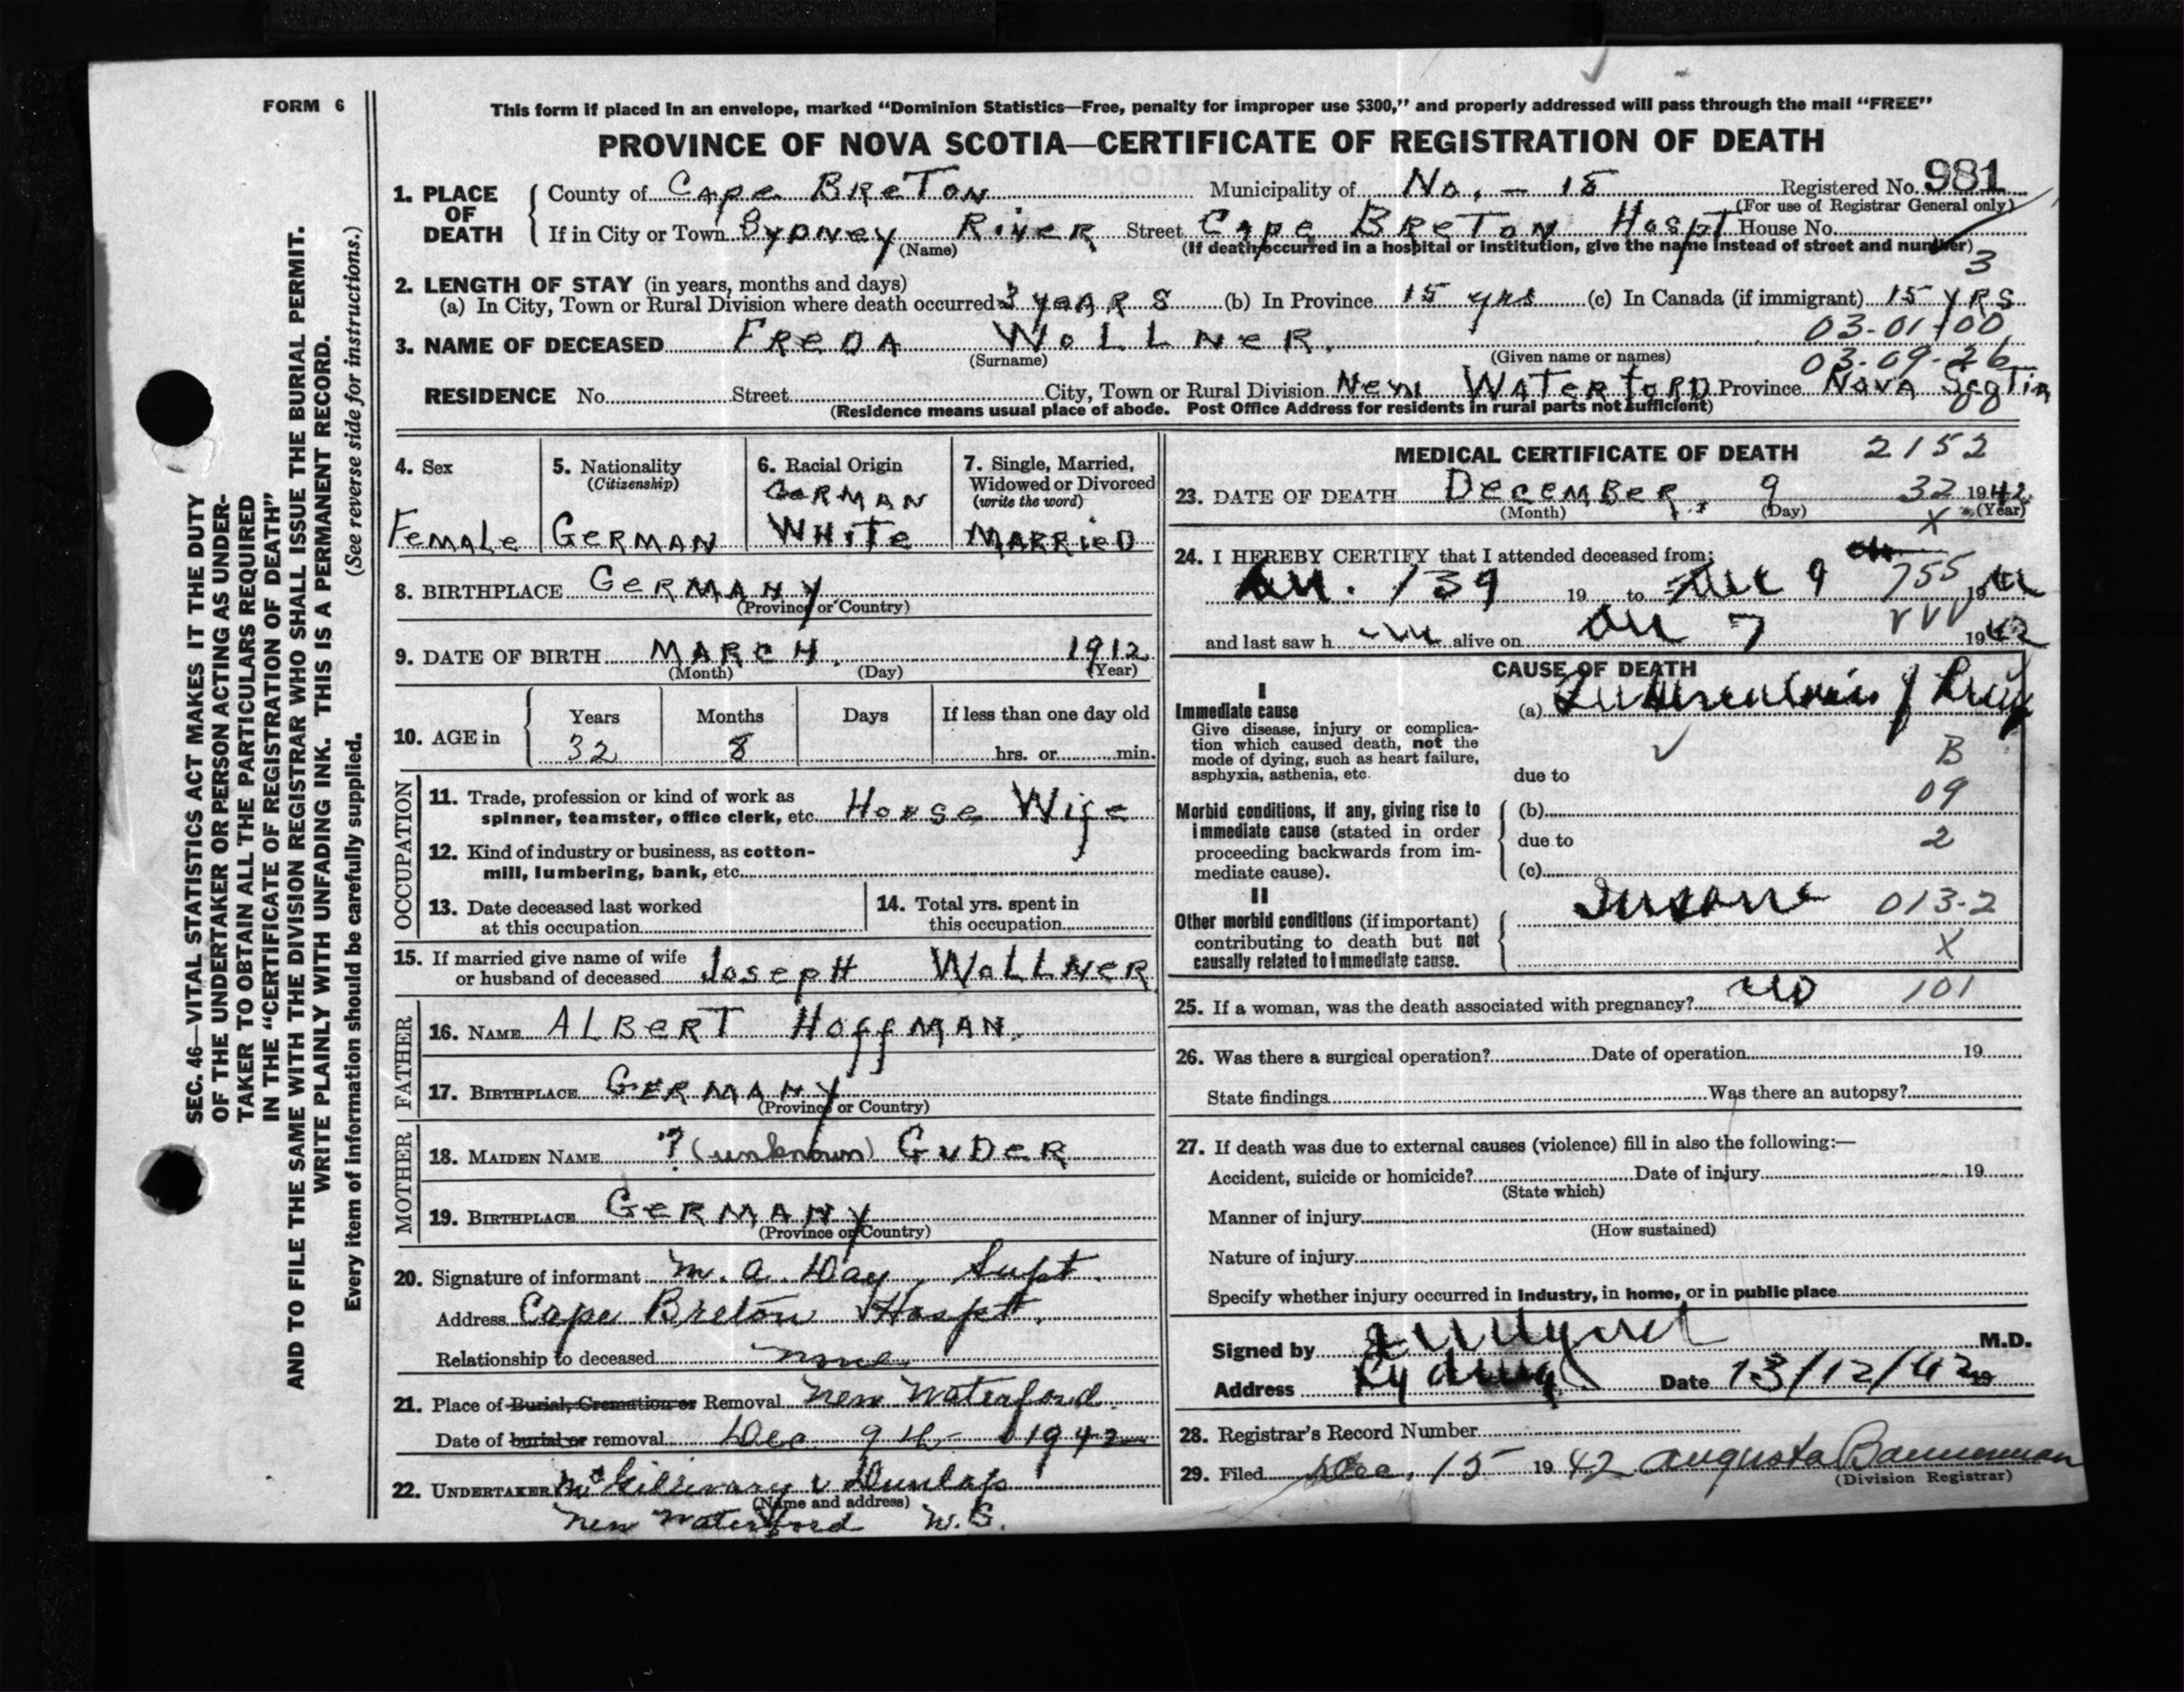 FORM 6
This form if placed in an envelope, marked “Dominion Statistics—Free, penalty for improper use $300,” and properly addressed will pass through the mail “FREE”
PROVINCE OF NOVA SCOTIA—CERTIFICATE OF REGISTRATION OF DEATH
1. PLACE OF DEATH
County of Cape Breton Municipality of No. – 15 Registered No. 981
(For use of Registrar General only)
If in City or Town Sydney River Street Cape Breton Hospt House No.
(Name) (If death occurred in a hospital or institution, give the name instead of street and number)
3
2. LENGTH OF STAY (in years, months and days)
(a) In City, Town or Rural Division where death occurred 3 years (b) In Province 15 yrs (c) In Canada (if immigrant) 15 yrs
03-01-00
3. NAME OF DECEASED Freda Wollner.
(Surname) (Given name or names)
03-09-26
RESIDENCE No. Street City, Town or Rural Division New Waterford Province Nova Scotia
(Residence means usual place of abode. Post Office Address for residents in rural parts not sufficient)
00
4. Sex Female
5. Nationality (Citizenship) German
6. Racial Origin German White
7. Single, Married, Widowed or Divorced (write the word) Married
8. BIRTHPLACE Germany
(Province or Country)
9. DATE OF BIRTH March. 1912
(Month) (Day) (Year)
10. AGE in Years Months Days If less than one day old
32 8 hrs. or min.
OCCUPATION
11. Trade, profession or kind of work as spinner, teamster, office clerk, etc. House Wife
12. Kind of industry or business, as cotton-mill, lumbering, bank, etc.
13. Date deceased last worked at this occupation
14. Total yrs. spent in this occupation
15. If married give name of wife or husband of deceased Joseph Wollner
FATHER
16. NAME Albert Hoffman.
17. BIRTHPLACE Germany
(Province or Country)
MOTHER
18. MAIDEN NAME ? (unknown) Guder
19. BIRTHPLACE Germany
(Province or Country)
20. Signature of informant M. A. Day, Supt.
Address Cape Breton Hospt.
Relationship to deceased none
21. Place of Burial, Cremation or Removal New Waterford
Date of burial or removal Dec 9th 1942
22. UNDERTAKER McGillivary & Dunlap
(Name and address)
New Waterford N.S.
MEDICAL CERTIFICATE OF DEATH 2152
23. DATE OF DEATH December, 9 32 1942
(Month) (Day) (Year)
X
24. I HEREBY CERTIFY that I attended deceased from:
139 19 to Dec 9 755 19
and last saw h alive on 7 1942
CAUSE OF DEATH
I
Immediate cause
Give disease, injury or complication which caused death, not the mode of dying, such as heart failure, asphyxia, asthenia, etc.
(a) Tuberculosis of Lung
B
due to
09
Morbid conditions, if any, giving rise to immediate cause (stated in order proceeding backwards from immediate cause).
(b)
due to 2
(c)
II
Other morbid conditions (if important) contributing to death but not causally related to immediate cause.
Insane 013-2
X
25. If a woman, was the death associated with pregnancy? no 101
26. Was there a surgical operation? Date of operation 19
State findings Was there an autopsy?
27. If death was due to external causes (violence) fill in also the following:—
Accident, suicide or homicide? Date of injury 19
(State which)
Manner of injury
(How sustained)
Nature of injury
Specify whether injury occurred in industry, in home, or in public place
Signed by M.D.
Address Date 13/12/42 19
28. Registrar's Record Number
29. Filed Dec. 15 1942 Augusta Bannerman
(Division Registrar)
SEC. 46—VITAL STATISTICS ACT MAKES IT THE DUTY
OF THE UNDERTAKER OR PERSON ACTING AS UNDER-
TAKER TO OBTAIN ALL THE PARTICULARS REQUIRED
IN THE “CERTIFICATE OF REGISTRATION OF DEATH”
AND TO FILE THE SAME WITH THE DIVISION REGISTRAR WHO SHALL ISSUE THE BURIAL PERMIT.
WRITE PLAINLY WITH UNFADING INK. THIS IS A PERMANENT RECORD.
Every item of information should be carefully supplied. (See reverse side for instructions.)